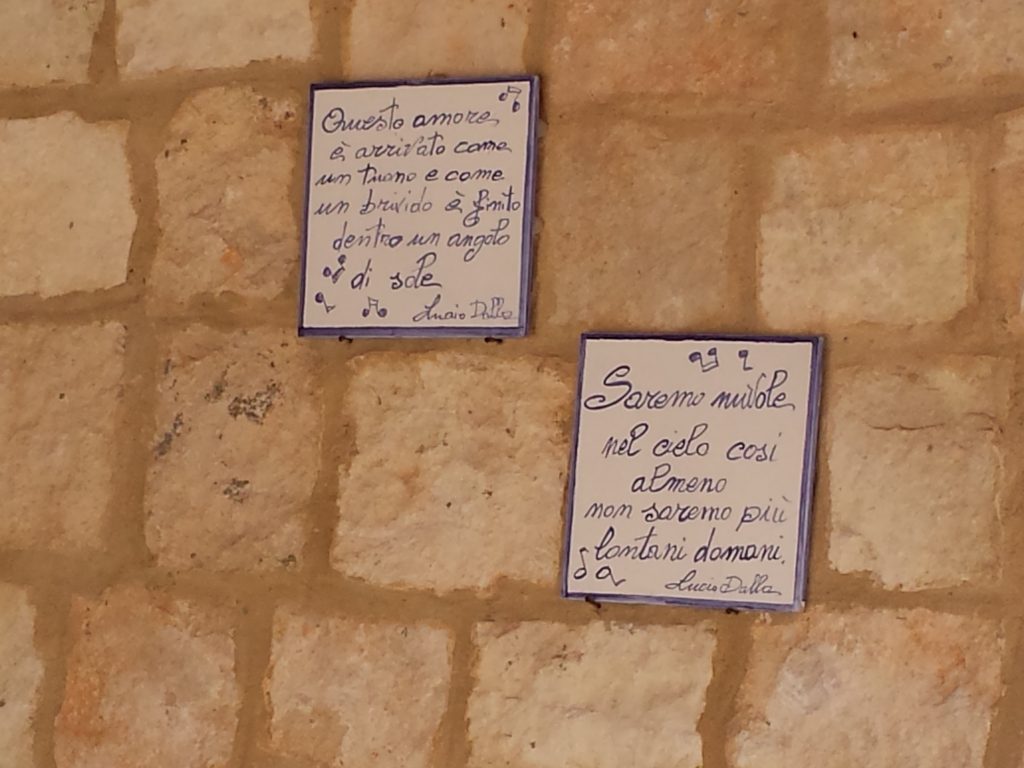 Questo amore
è arrivato come
un tuono e come
un brivido è finito
dentro un angolo
di sole
Lucio Dalla
Saremo nuvole
nel cielo cosi
almeno
non saremo più
lontani domani.
Lucio Dalla